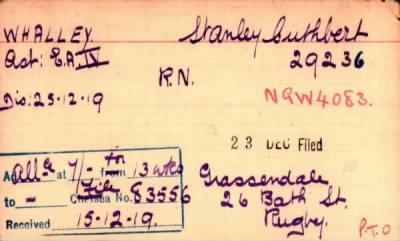 WHALLEY. Stanley Cuthbert
Act: E.A. IV 29236
R.N.
Dis: 25-12-19 NGW4083.
23 DEC Filed
All'ce at 7/- from 13 wks
to - File Chelsea No. 83556
Received 15-12-19.
Grassendale
26 Bath St.
Rugby.
P.T.O